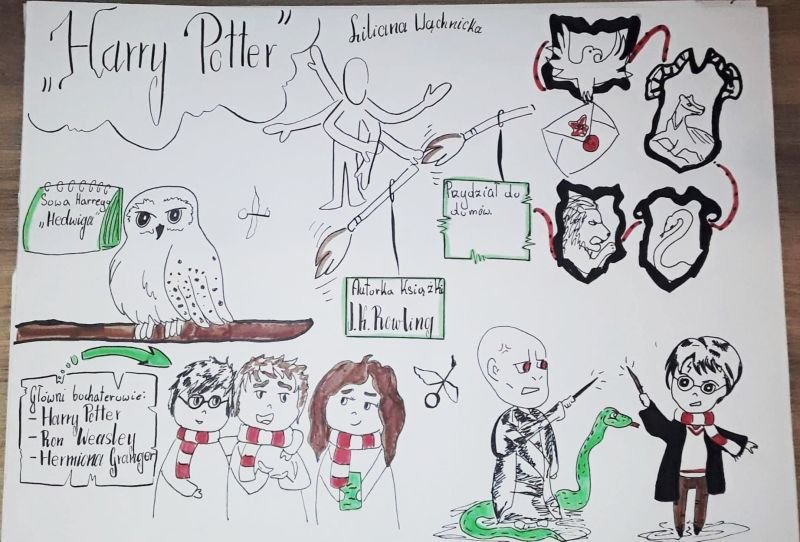 „Harry Potter"
Liliana Wąchnicka
Sowa Harrego
„Hedwiga"
Przydział do
domów.
Autorka Książki
J.K. Rowling
Główni bochaterowie:
- Harry Potter
- Ron Weasley
- Hermiona Granger